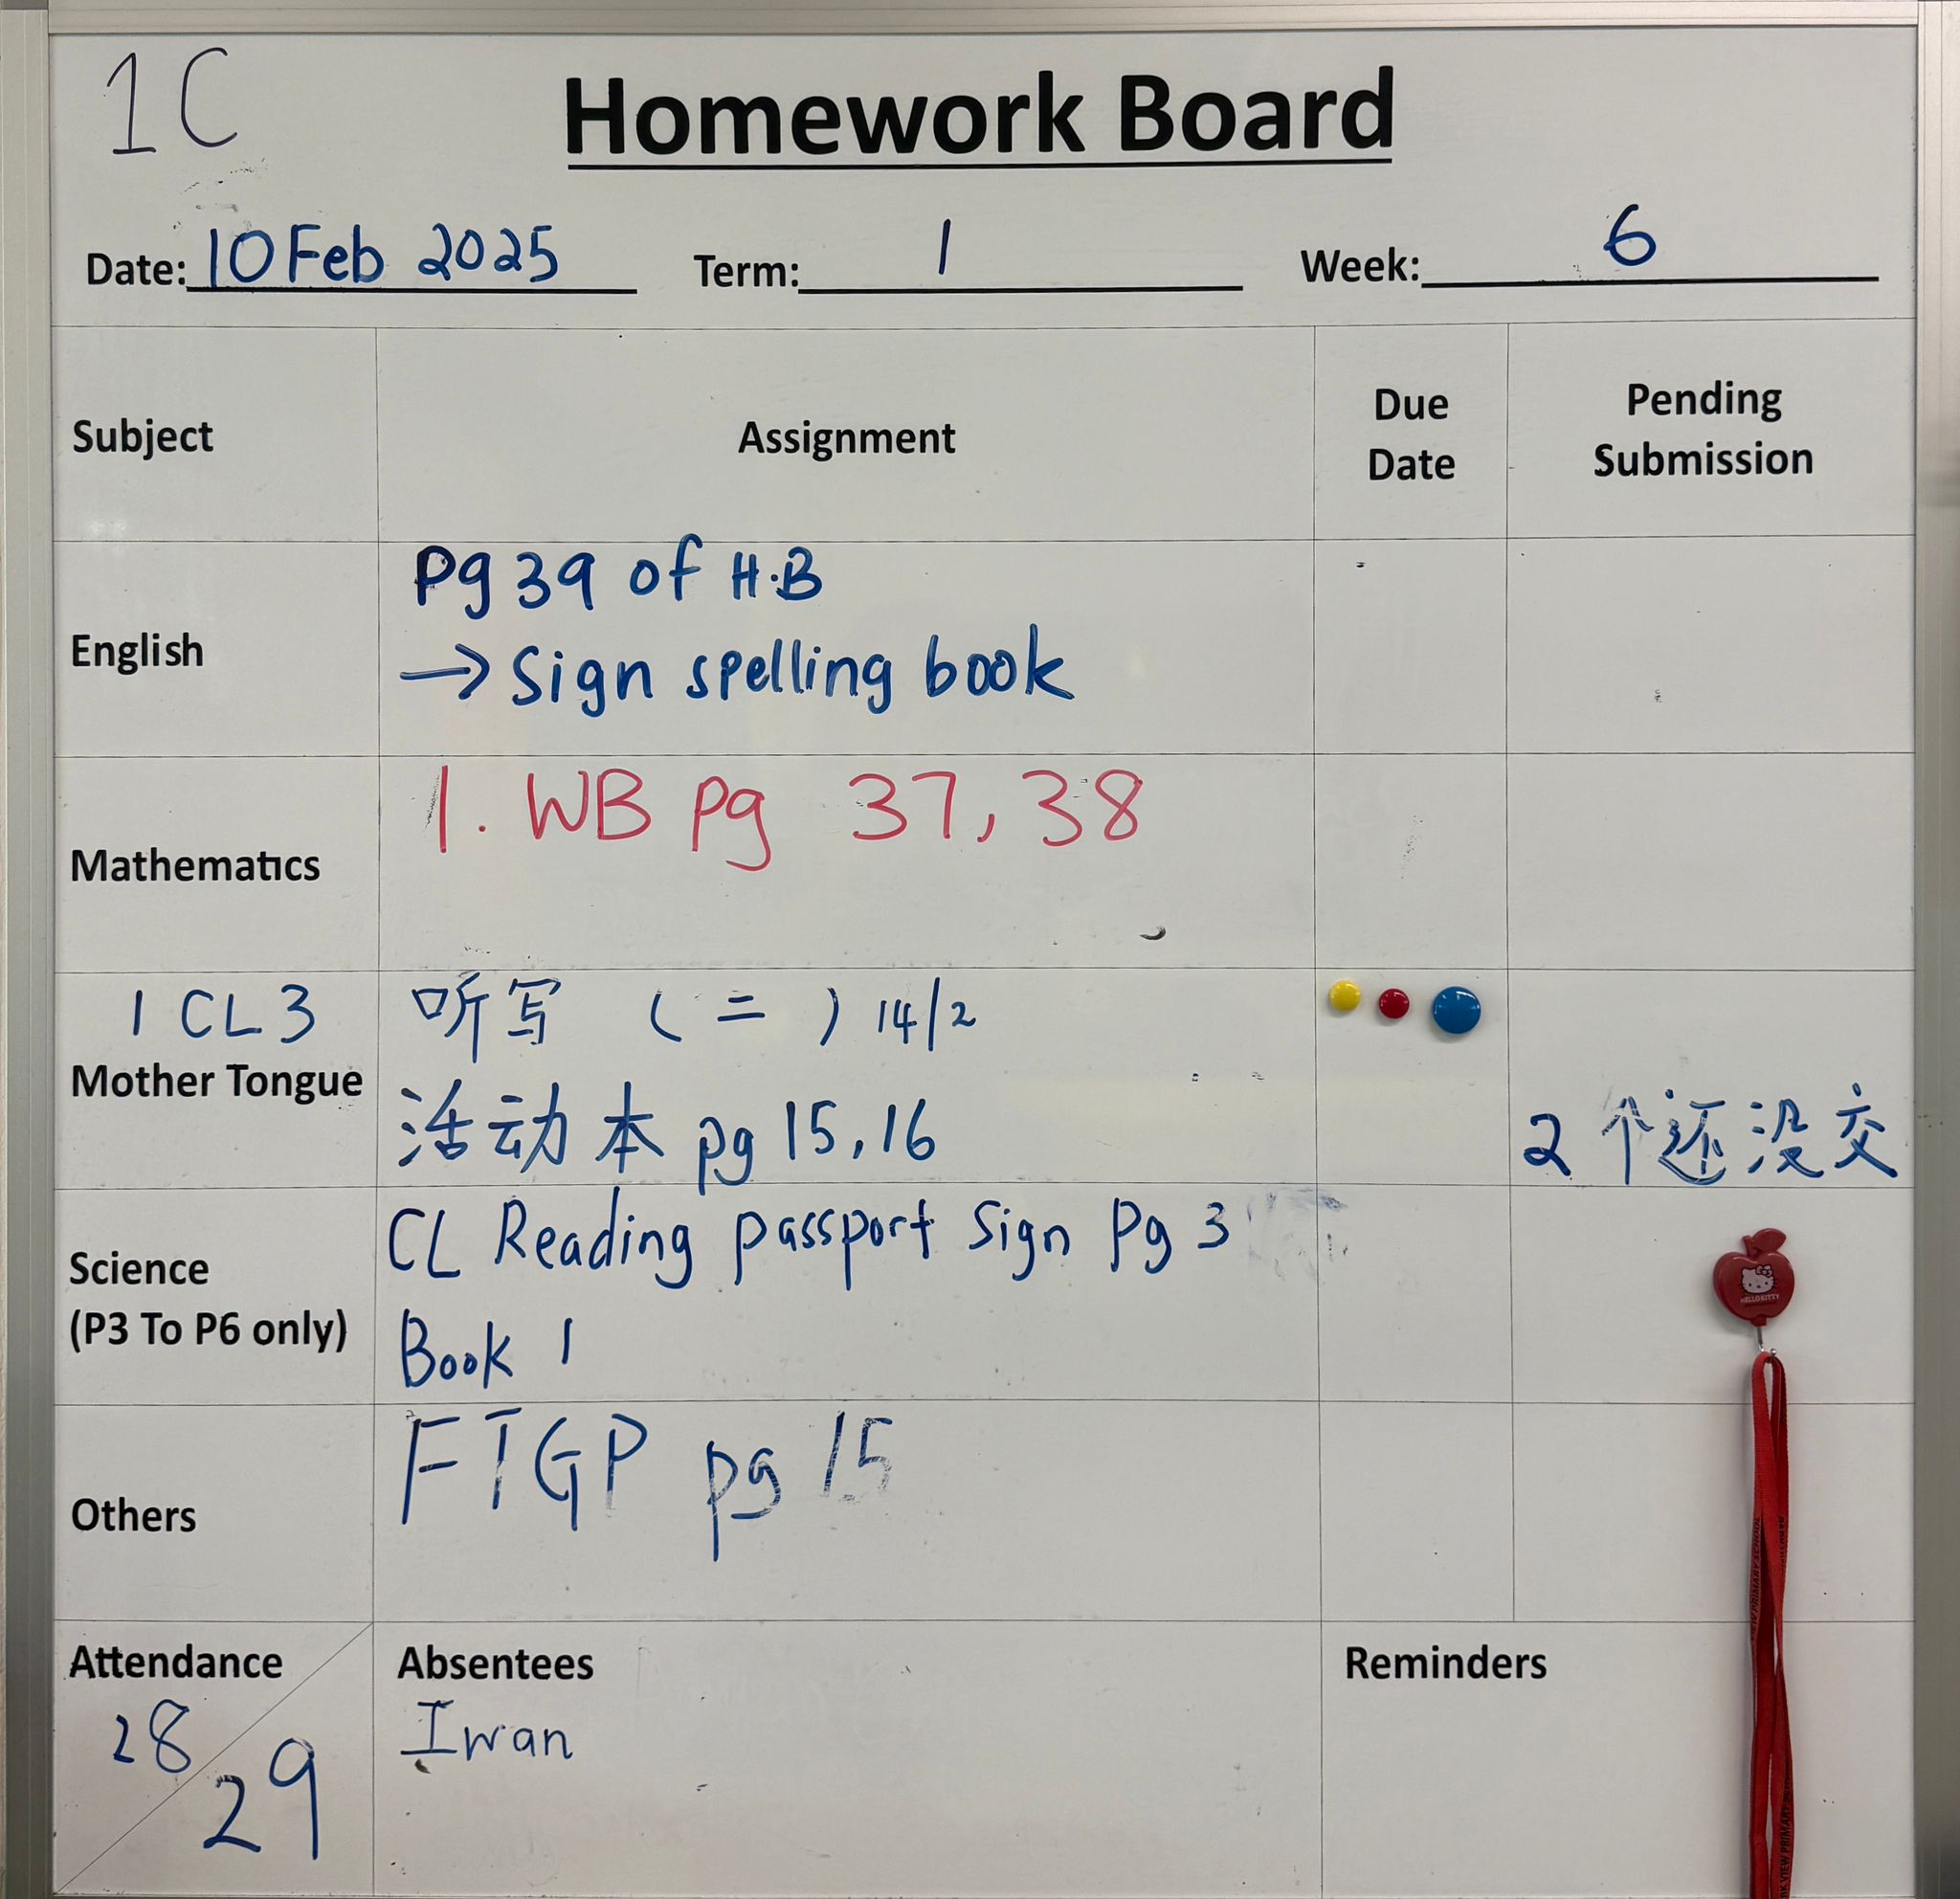 1C
Homework Board
Date: 10 Feb 2025 Term: 1 Week: 6
Subject Assignment Due Date Pending Submission
English
Pg 39 of H.B
→ Sign spelling book
Mathematics
1. WB pg 37, 38
1 CL3
Mother Tongue
听写 (二) 14/2
活动本 pg 15, 16
2个还没交
Science
(P3 To P6 only)
CL Reading passport Sign Pg 3
Book 1
HELLO KITTY
Others
FTGP pg 15
Attendance
28/29
Absentees
Iwan
Reminders
VIEW PRIMARY SCHOOL